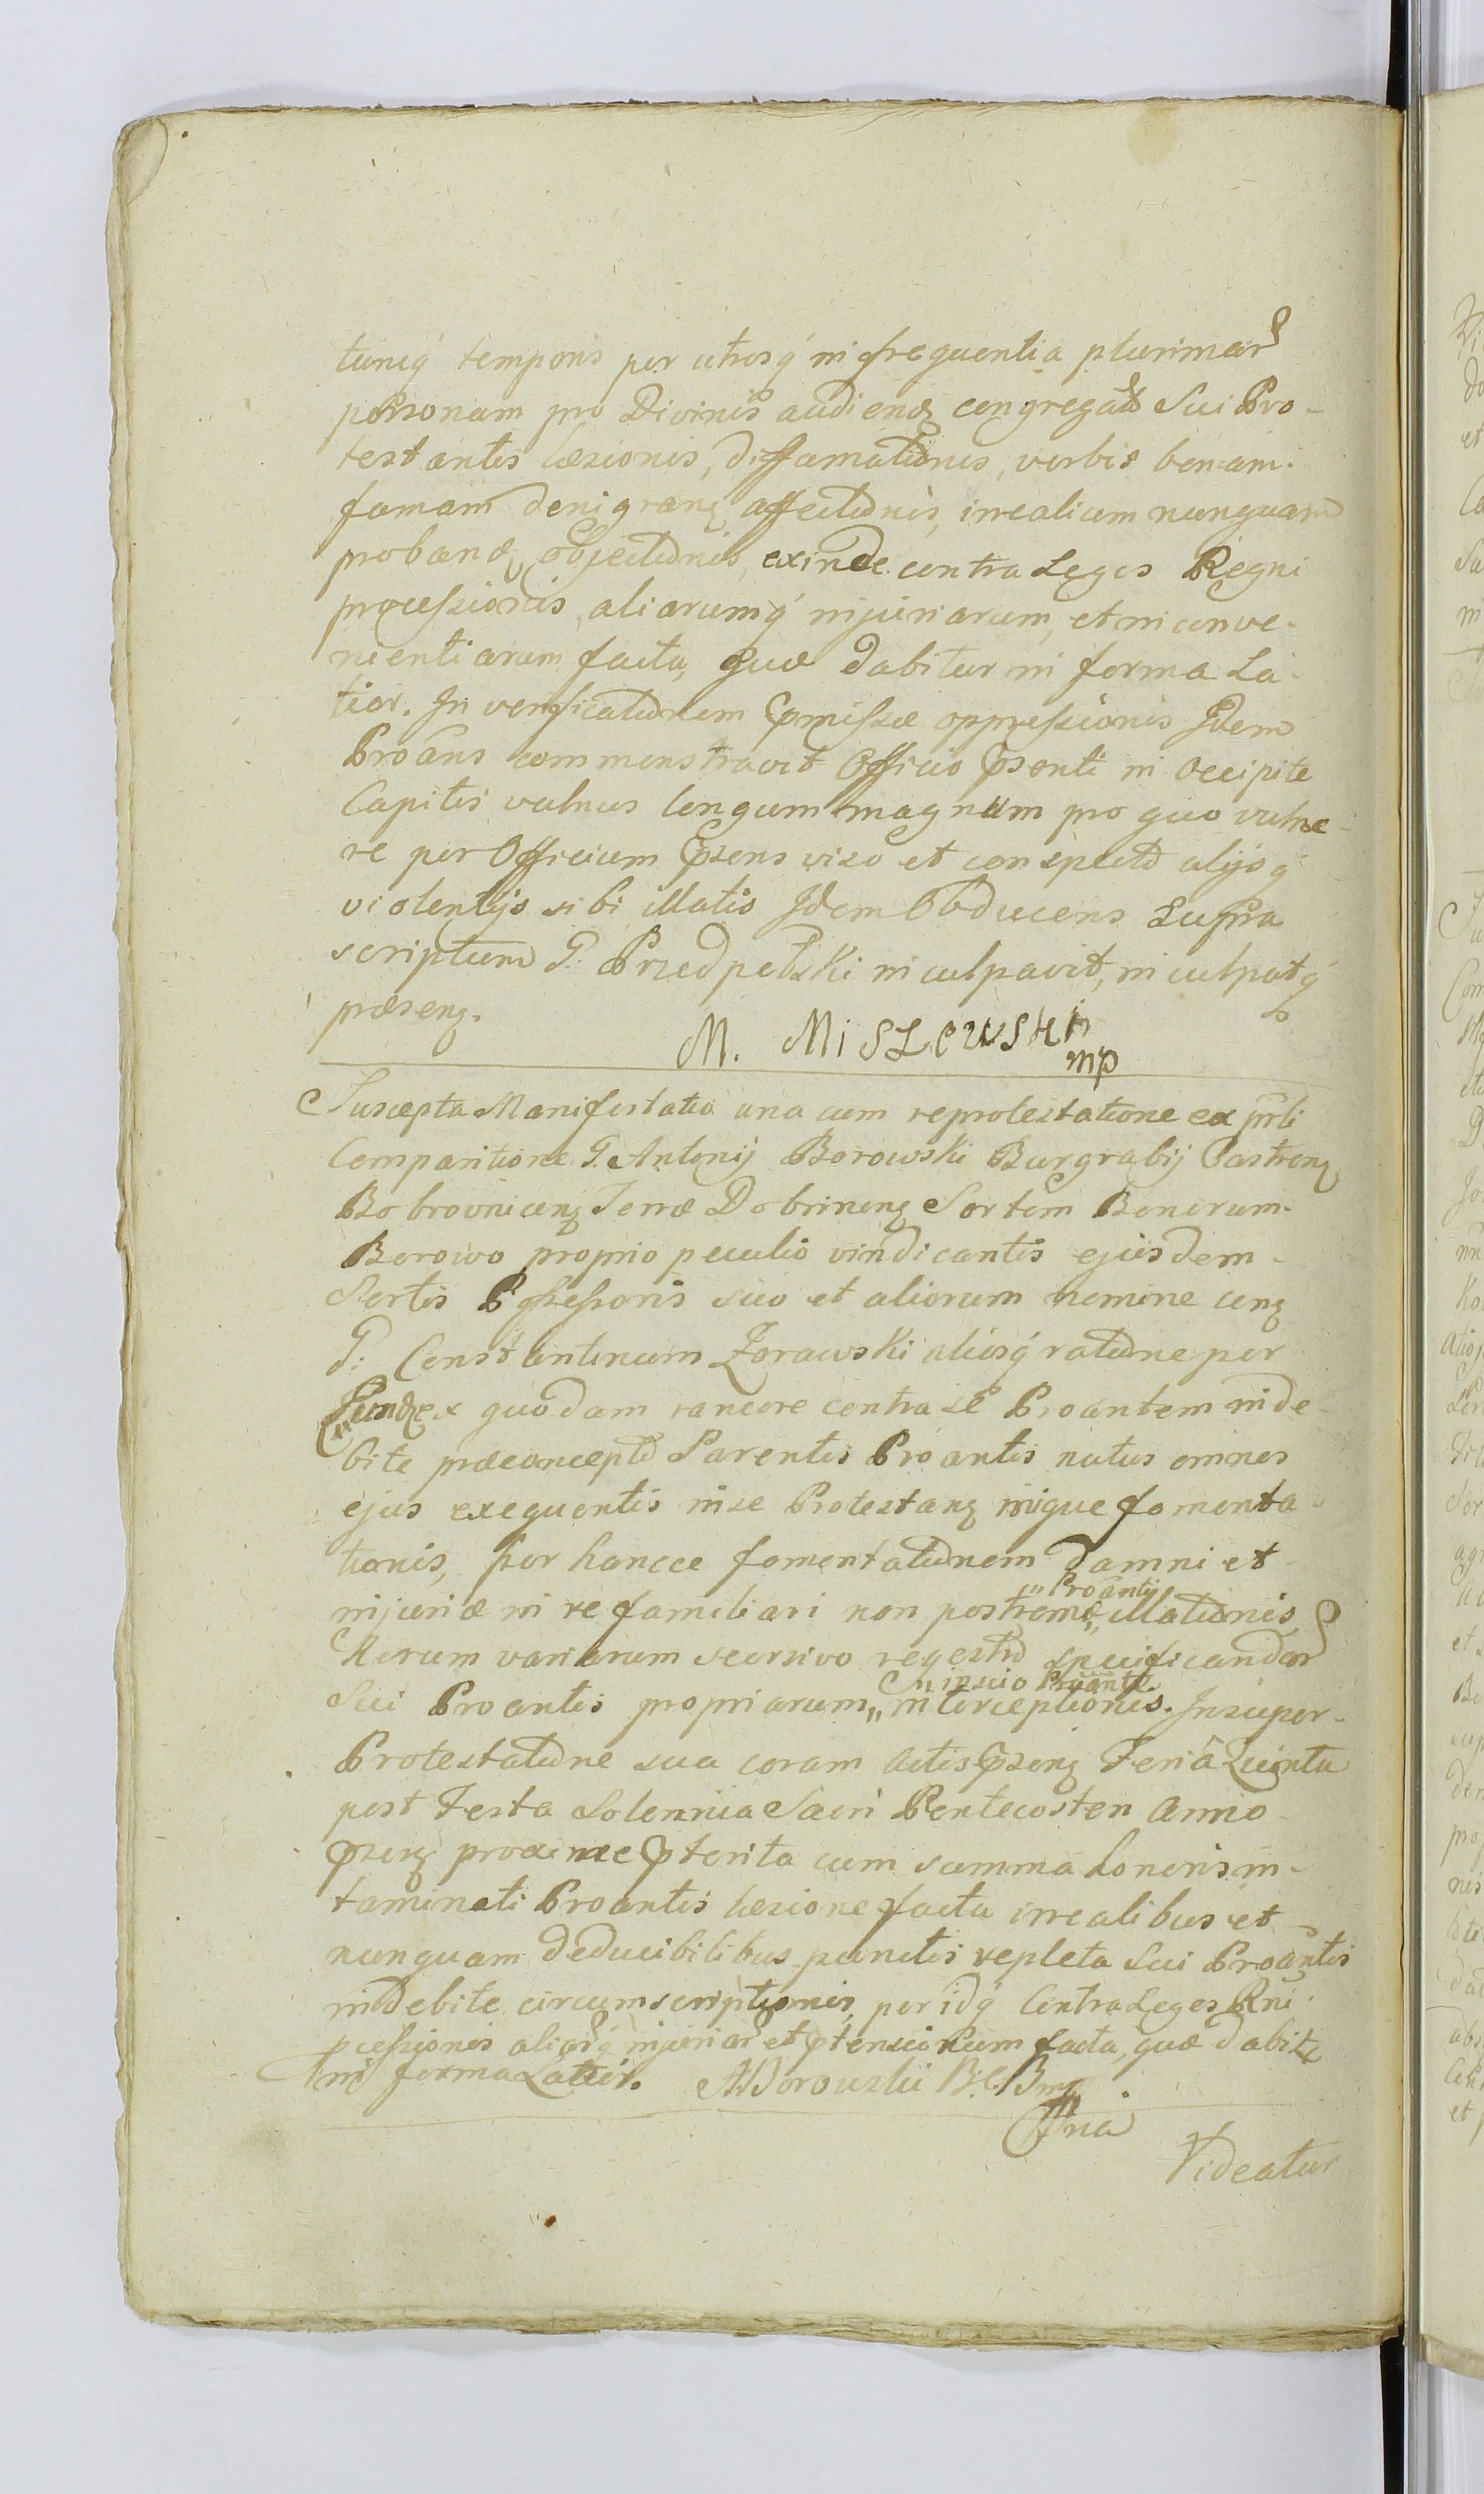 tuneq́ temporis per utrosq́ in frequentia plurimar
personam pro Divinis audiendz congregats Sui Pro-
testantis læsionis, diffamationis, verbis benam
famam denigranz affectionis, irrealium nunquam
proband objectionis, exinde contra Leges Regni
processionis, aliarumq́ injuriarum, et inconve-
nientiarum facta, quæ dabitur in forma La-
tior. In verificationem præmissæ oppressionis Idem
Proans commonstravit Officio Psenti in Occipite
Capitis vulnus longum magnum pro quo vulne-
re per Officium Psens viso et conspecto alijsq́
violentijs sibi illatis Idem Obducens Supra
scriptum G. Przedpełski inculpavit, inculpatq́
præsenz.
M. Miszewski
mp
Suscepta Manifestatio una cum reprotestatione ex prsti
Comparitione G. Antonij Borowski Burgrabij Castrenz
Bobrovnicenz Terræ Dobrinenz Sortem Bonorum
Borowo proprio peculio vindicantis ejusdem
Sortis Possessoris suo et aliorum nomine conz
G: Constantinum Zorawski aliosq́ ratione per
ex quodam rancore contra se Proantem inde-
bite præconcepto Parentis Proantis nutus omnes
ejus exequentis in se Protestanz inique fomenta-
tionis, per hancce fomentationem damni et
injuriæ in re familiari non postremæ "Proanti" illationis
Rerum variarum seorsivo regestro specificandar
Sui Proantis propriarum "inscio Proante" interceptionis. Insuper
Protestatione sua coram Actis Psenz Feria Quinta
post Festa Solennia Sacri Pentecosten Anno
Psenz proxime Pterita cum summa honoris in-
taminati Proantis læsione facta irrealibus et
nunquam deducibilibus punctis repleta Sui Proantis
indebite circumscriptionis, per idq́ Contra Leges Rni
pcessionis aliarq́ injuriar et Ptensionum facta, quæ dabit
in forma Latior. ABorowski B.C.B mp
Videatur